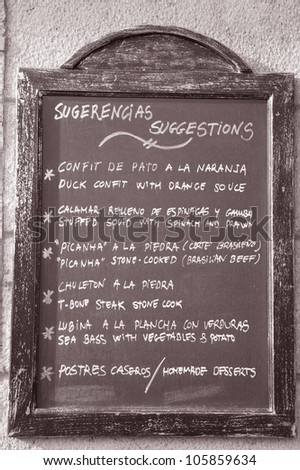 SUGERENCIAS
SUGGESTIONS
* CONFIT DE PATO A LA NARANJA
DUCK CONFIT WITH ORANGE SOUCE
* CALAMAR RELLENO DE ESPINACAS Y GAMBA
STUFFED SQUID WITH SPINACH AND PRAWN
* "PICANHA" A LA PIEDRA (CORTE BRASILEÑO)
"PICANHA" STONE-COOKED (BRASILIAN BEEF)
* CHULETON A LA PIEDRA
T-BONE STEAK STONE COOK
* LUBINA A LA PLANCHA CON VERDURAS
SEA BASS WITH VEGETABLES & POTATO
* POSTRES CASEROS / HOMEMADE DESSERTS
shutterstock
www.shutterstock.com · 105859634